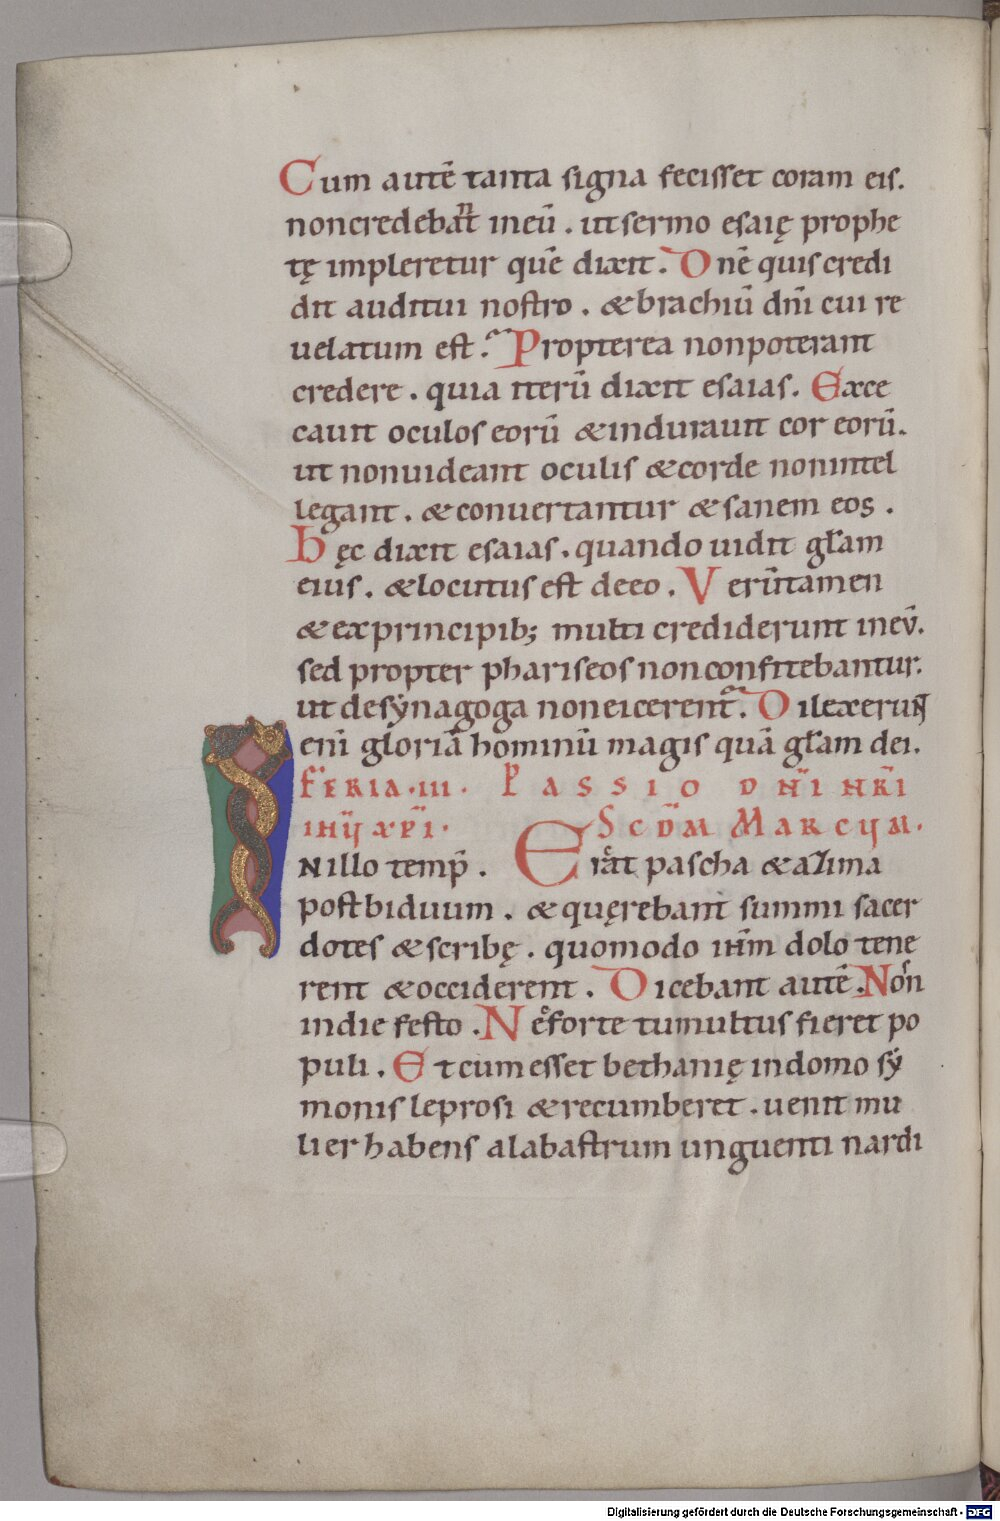 Cum autē tanta signa fecisset coram eis.
non credebant in eū. ut sermo esaię prophe
tę impleretur quē dixit. Dnē quis credi
dit auditui nostro. & brachiū dn̄i cui re
uelatum est. Propterea non poterant
credere. quia iterū dixit esaias. Exce
cauit oculos eorū & indurauit cor eorū.
ut non uideant oculis & corde non intel
legant. & conuertantur & sanem eos.
Hęc dixit esaias. quando uidit gl̄am
eius. & locutus est de eo. Verūtamen
& ex principib; multi crediderunt in eū.
sed propter phariseos non confitebantur.
ut de synagoga non eicerent. Dilexerunt
eni̅ gloriā hominū magis quā gl̄am dei.
FERIA.III. PASSIO DN̄I NR̄I
IHŪ XP̄I. SCD̄M MARCUM.
IN illo temp̄. Erat pascha & azima
post biduum. & quęrebant summi sacer
dotes & scribę. quomodo ihm̄ dolo tene
rent & occiderent. Dicebant autē. Non
in die festo. Ne forte tumultus fieret po
puli. Et cum esset bethanię in domo sy
monis leprosi & recumberet. uenit mu
lier habens alabastrum unguenti nardi
Digitalisierung gefördert durch die Deutsche Forschungsgemeinschaft - DFG